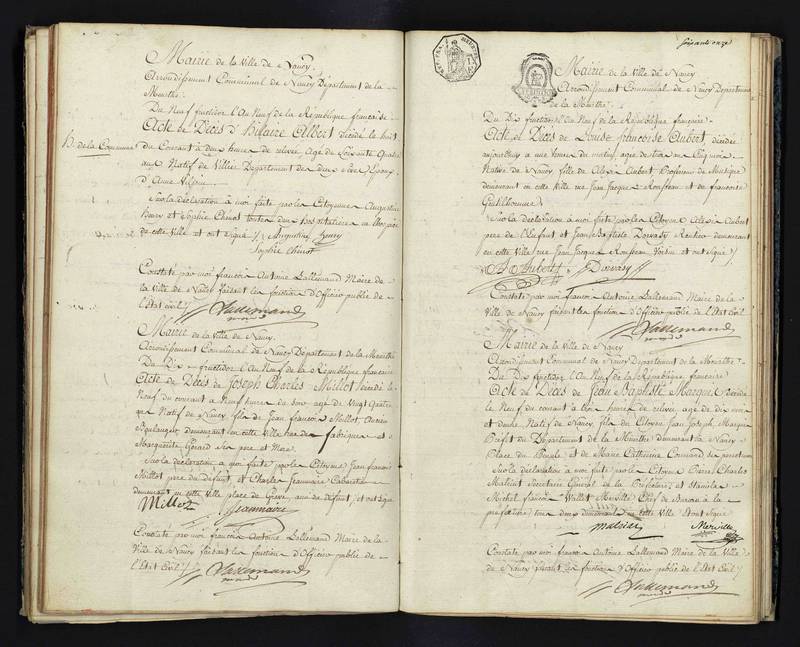 Mairie de la Ville de Nancy.
Arrondissement Communal de Nancy Département de la
Meurthe.
Du Neuf fructidor l'An Neuf de la République française
Acte de Décès d'Hilaire Albert décédé le huit
H. de la Commune
du Courant à deux heures de relevée, âgé de Soixante Quatre
ans Natif de Villiers Département des deux Sèvres Epoux
d'Anne
Sur la déclaration à moi faite par les Citoyennes Augustine
Henry et Sophie Chinot toutes deux hospitalières en
de cette ville et ont signé /. Augustine henry
Sophie Chinot
Constaté par moi françois Antoine Lallemand Maire de
la Ville de Nancy faisant les fonctions d'Officier public de
l'Etat Civil /.
Lallemand
Mairie de la Ville de Nancy.
Arrondissement Communal de Nancy Département de la Meurthe
Du Dix fructidor l'An Neuf de la République française
Acte de Décès de Joseph Charles Millot décédé le
Neuf du courant à Neuf heures du soir âgé de Vingt Quatre
ans Natif de Nancy fils de Jean françois Millot, Ancien
Boulanger, demeurant en cette Ville rue des fabriques et
Marguerite Gérard Ses père et Mère
Sur la déclaration à moi faite par les Citoyens Jean françois
Millot père du défunt, et Charles Jeanmaire Cabaretier
demeurant en cette Ville place de Grève, ami du défunt, et ont signé
Millot Jeanmaire
Constaté par moi françois Antoine Lallemand Maire de la
Ville de Nancy faisant les fonctions d'Officier public de
l'Etat Civil /.
Lallemand
soixante onze
Mairie de la Ville de Nancy
Arrondissement Communal de Nancy Département
de la Meurthe
Du Dix fructidor l'An Neuf de la République française.
Acte de Décès de Louise françoise Aubert décédée
aujourd'huy à une heure du matin, âgée de
Native de Nancy fille de Alexis Aubert Professeur de Musique
demeurant en cette Ville rue Jean Jacque Rousseau et de françoise
Guéilhomme
Sur la déclaration à moi faite par les Citoyens Alexis Aubert
père de l'Enfant et Jean Baptiste Dorvasy Rentier demeurant
en cette Ville rue Jean Jacque Rousseau Voisin et ont signé /.
Aubert Dorvasy
Constaté par moi françois Antoine Lallemand Maire de la
Ville de Nancy faisant les fonctions d'Officier public de l'Etat Civil
Lallemand
Mairie de la Ville de Nancy
Arrondissement Communal de Nancy Département de la Meurthe
Du Dix fructidor l'An Neuf de la République française
Acte de Décès de Jean Baptiste Marquis décédé
le Neuf du courant à trois heures de relevée âgé de dix mois
et demi Natif de Nancy, fils du Citoyen Jean Joseph Marquis
Préfet du Département de la Meurthe demeurant à Nancy
Place du Peuple et de Marie Catherine
Sur la déclaration à moi faite par les Citoyens Pierre Charles
Secrétaire Général de la Préfecture, et Stanislas
Michel françois Merville Chef de Bureau à la
préfecture tous deux demeurant en cette Ville et ont signé
Merville
Constaté par moi françois Antoine Lallemand Maire de la Ville
de Nancy faisant les fonctions d'Officier public de l'Etat Civil /.
Lallemand